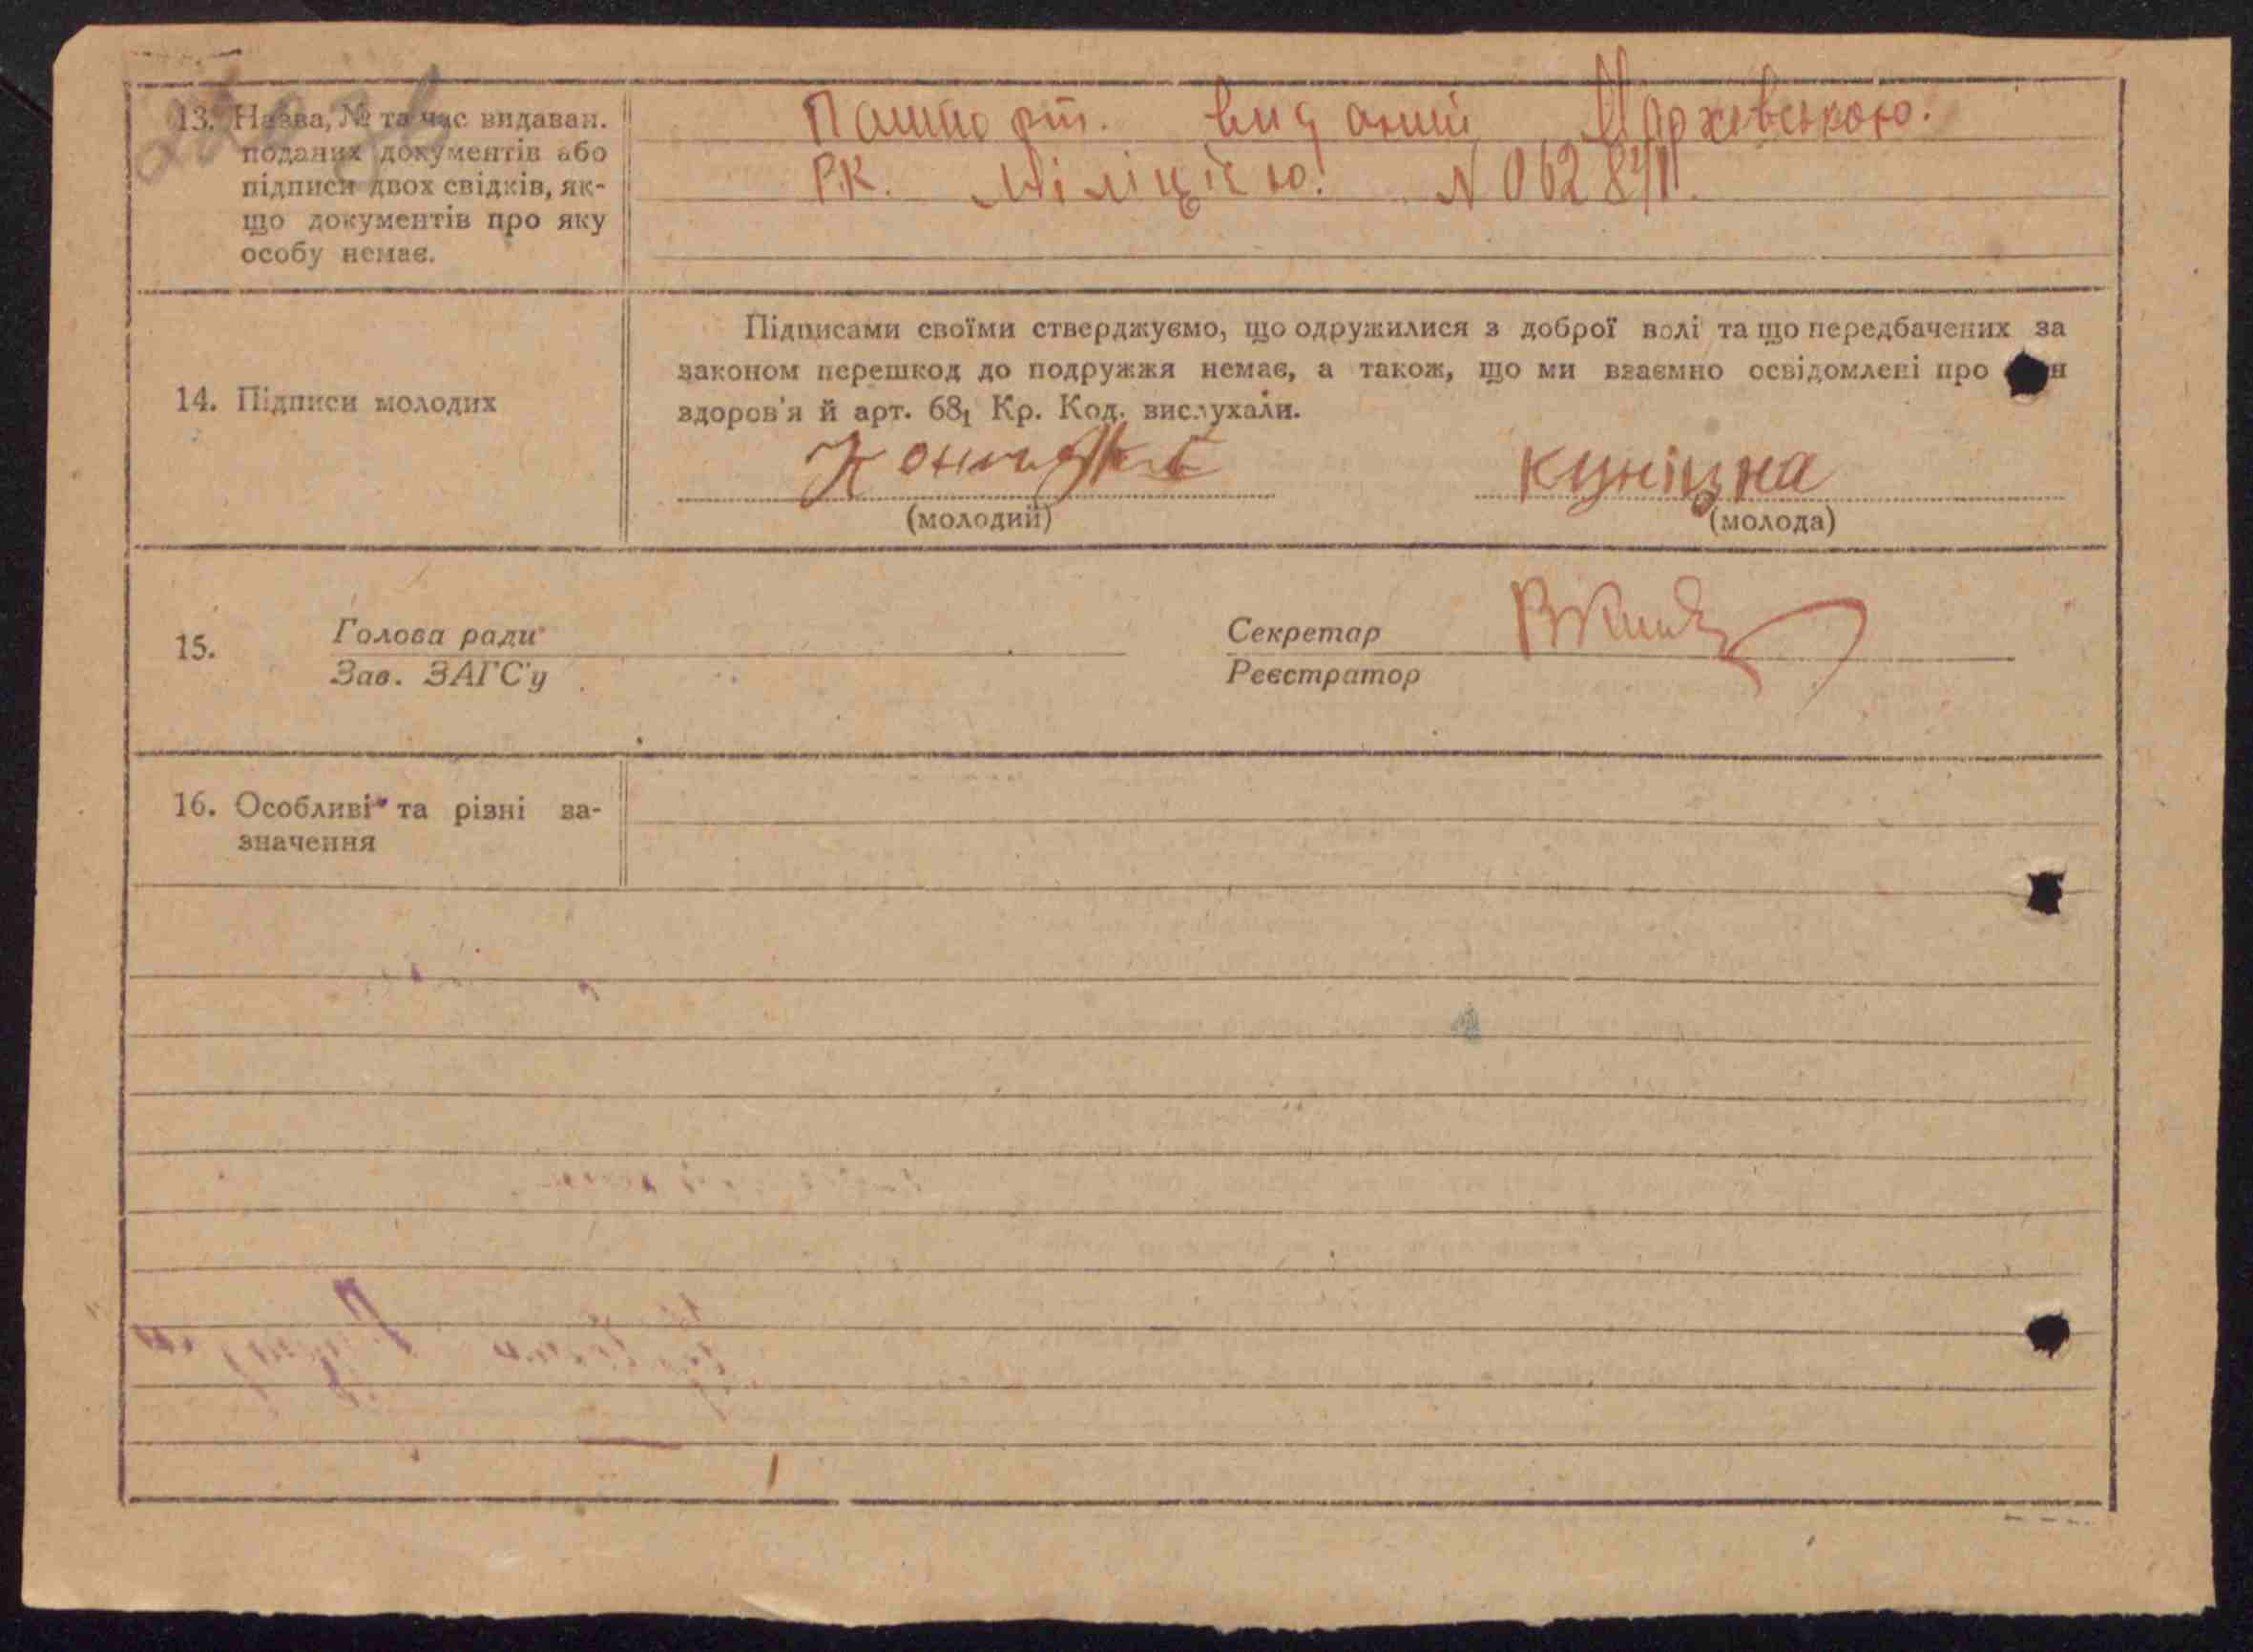 13. Назва, № та час видаван. поданих документів або підписи двох свідків, якщо документів про яку особу немає.
Пашпорт. виданий
Р.К. Міліцією.
14. Підписи молодих
Підписами своїми стверджуємо, що одружилися з доброї волі та що передбачених за
законом перешкод до подружжя немає, а також, що ми взаємно освідомлені про
здоров'я й арт. 68₁ Кр. Код. вислухали.
куніцна
(молодий) (молода)
15. Голова ради Секретар
Зав. ЗАГС'у Реєстратор
16. Особливі та різні за-
значення